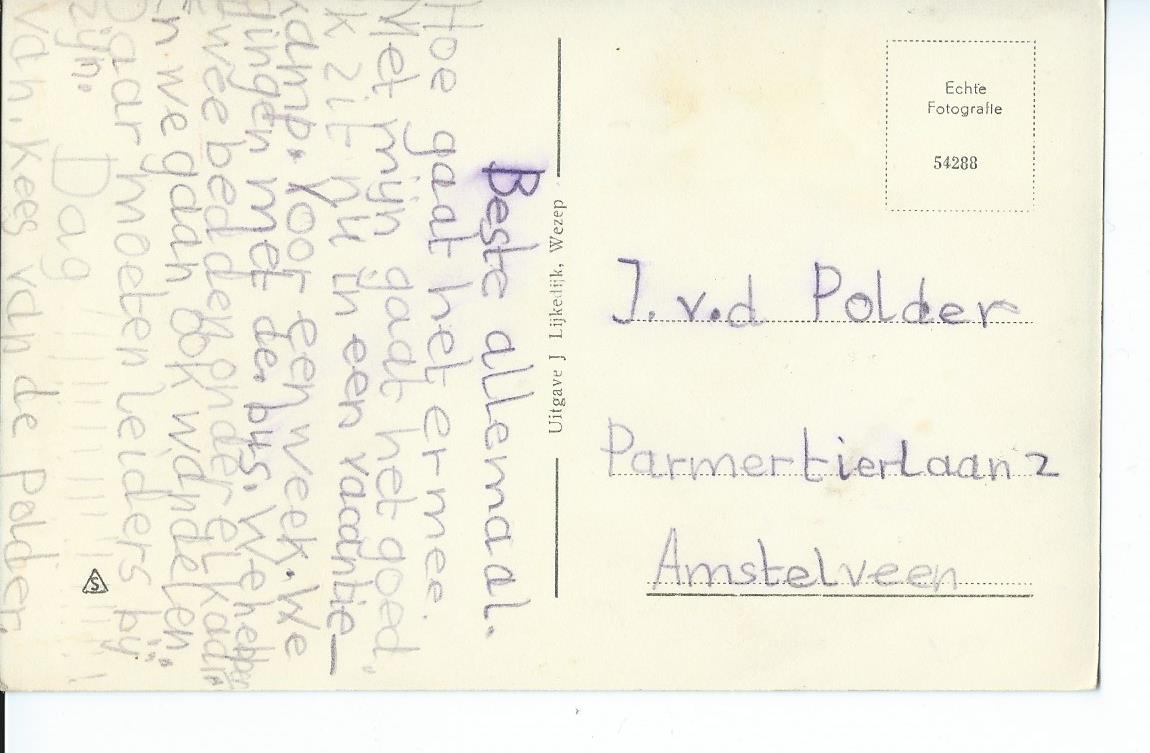 Beste allemaal.
Hoe gaat het ermee.
Met mijn gaat het goed.
Ik zit nu in een vacantie
kamp. Voor een week. We
gingen met de bus. We hebben
twee bedden onder elkaar.
En we gaan ook wandelen.
Daar moeten leiders bij
zijn.
Dag
van. Kees van de Polder.
S
Uitgave J Lijkedijk, Wezep
Echte
Fotografie
54288
J. v.d Polder
Parmertierlaan 2
Amstelveen